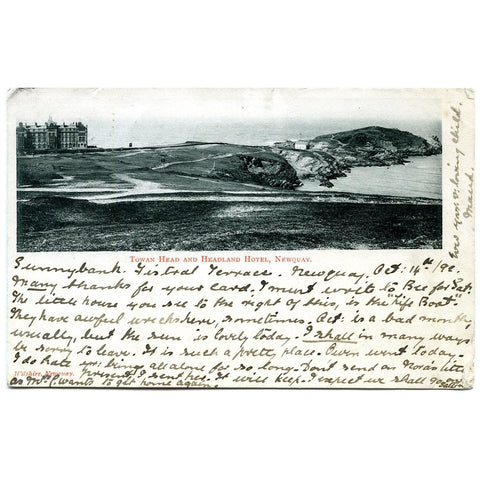 Towan Head and Headland Hotel, Newquay.
Sunnybank. Fistral Terrace. Newquay, Oct: 14th/90.
Many thanks for your card. I must write to Bee for Sat:
The little house you see to the right of this, is the "Life Boat"
They have awful wrecks here, sometimes. Oct: is a bad month,
usually, but the sun is lovely today. I shall in many ways
be sorry to leave. It is such a pretty place. Owen went today.
I do hate being all alone for so long. Dont send on Nora's little
present, I sent hers. It will keep. I expect we shall go on
as Mr. wants to get home again.
Wiltshire, Newquay.
loving child.
Maud.